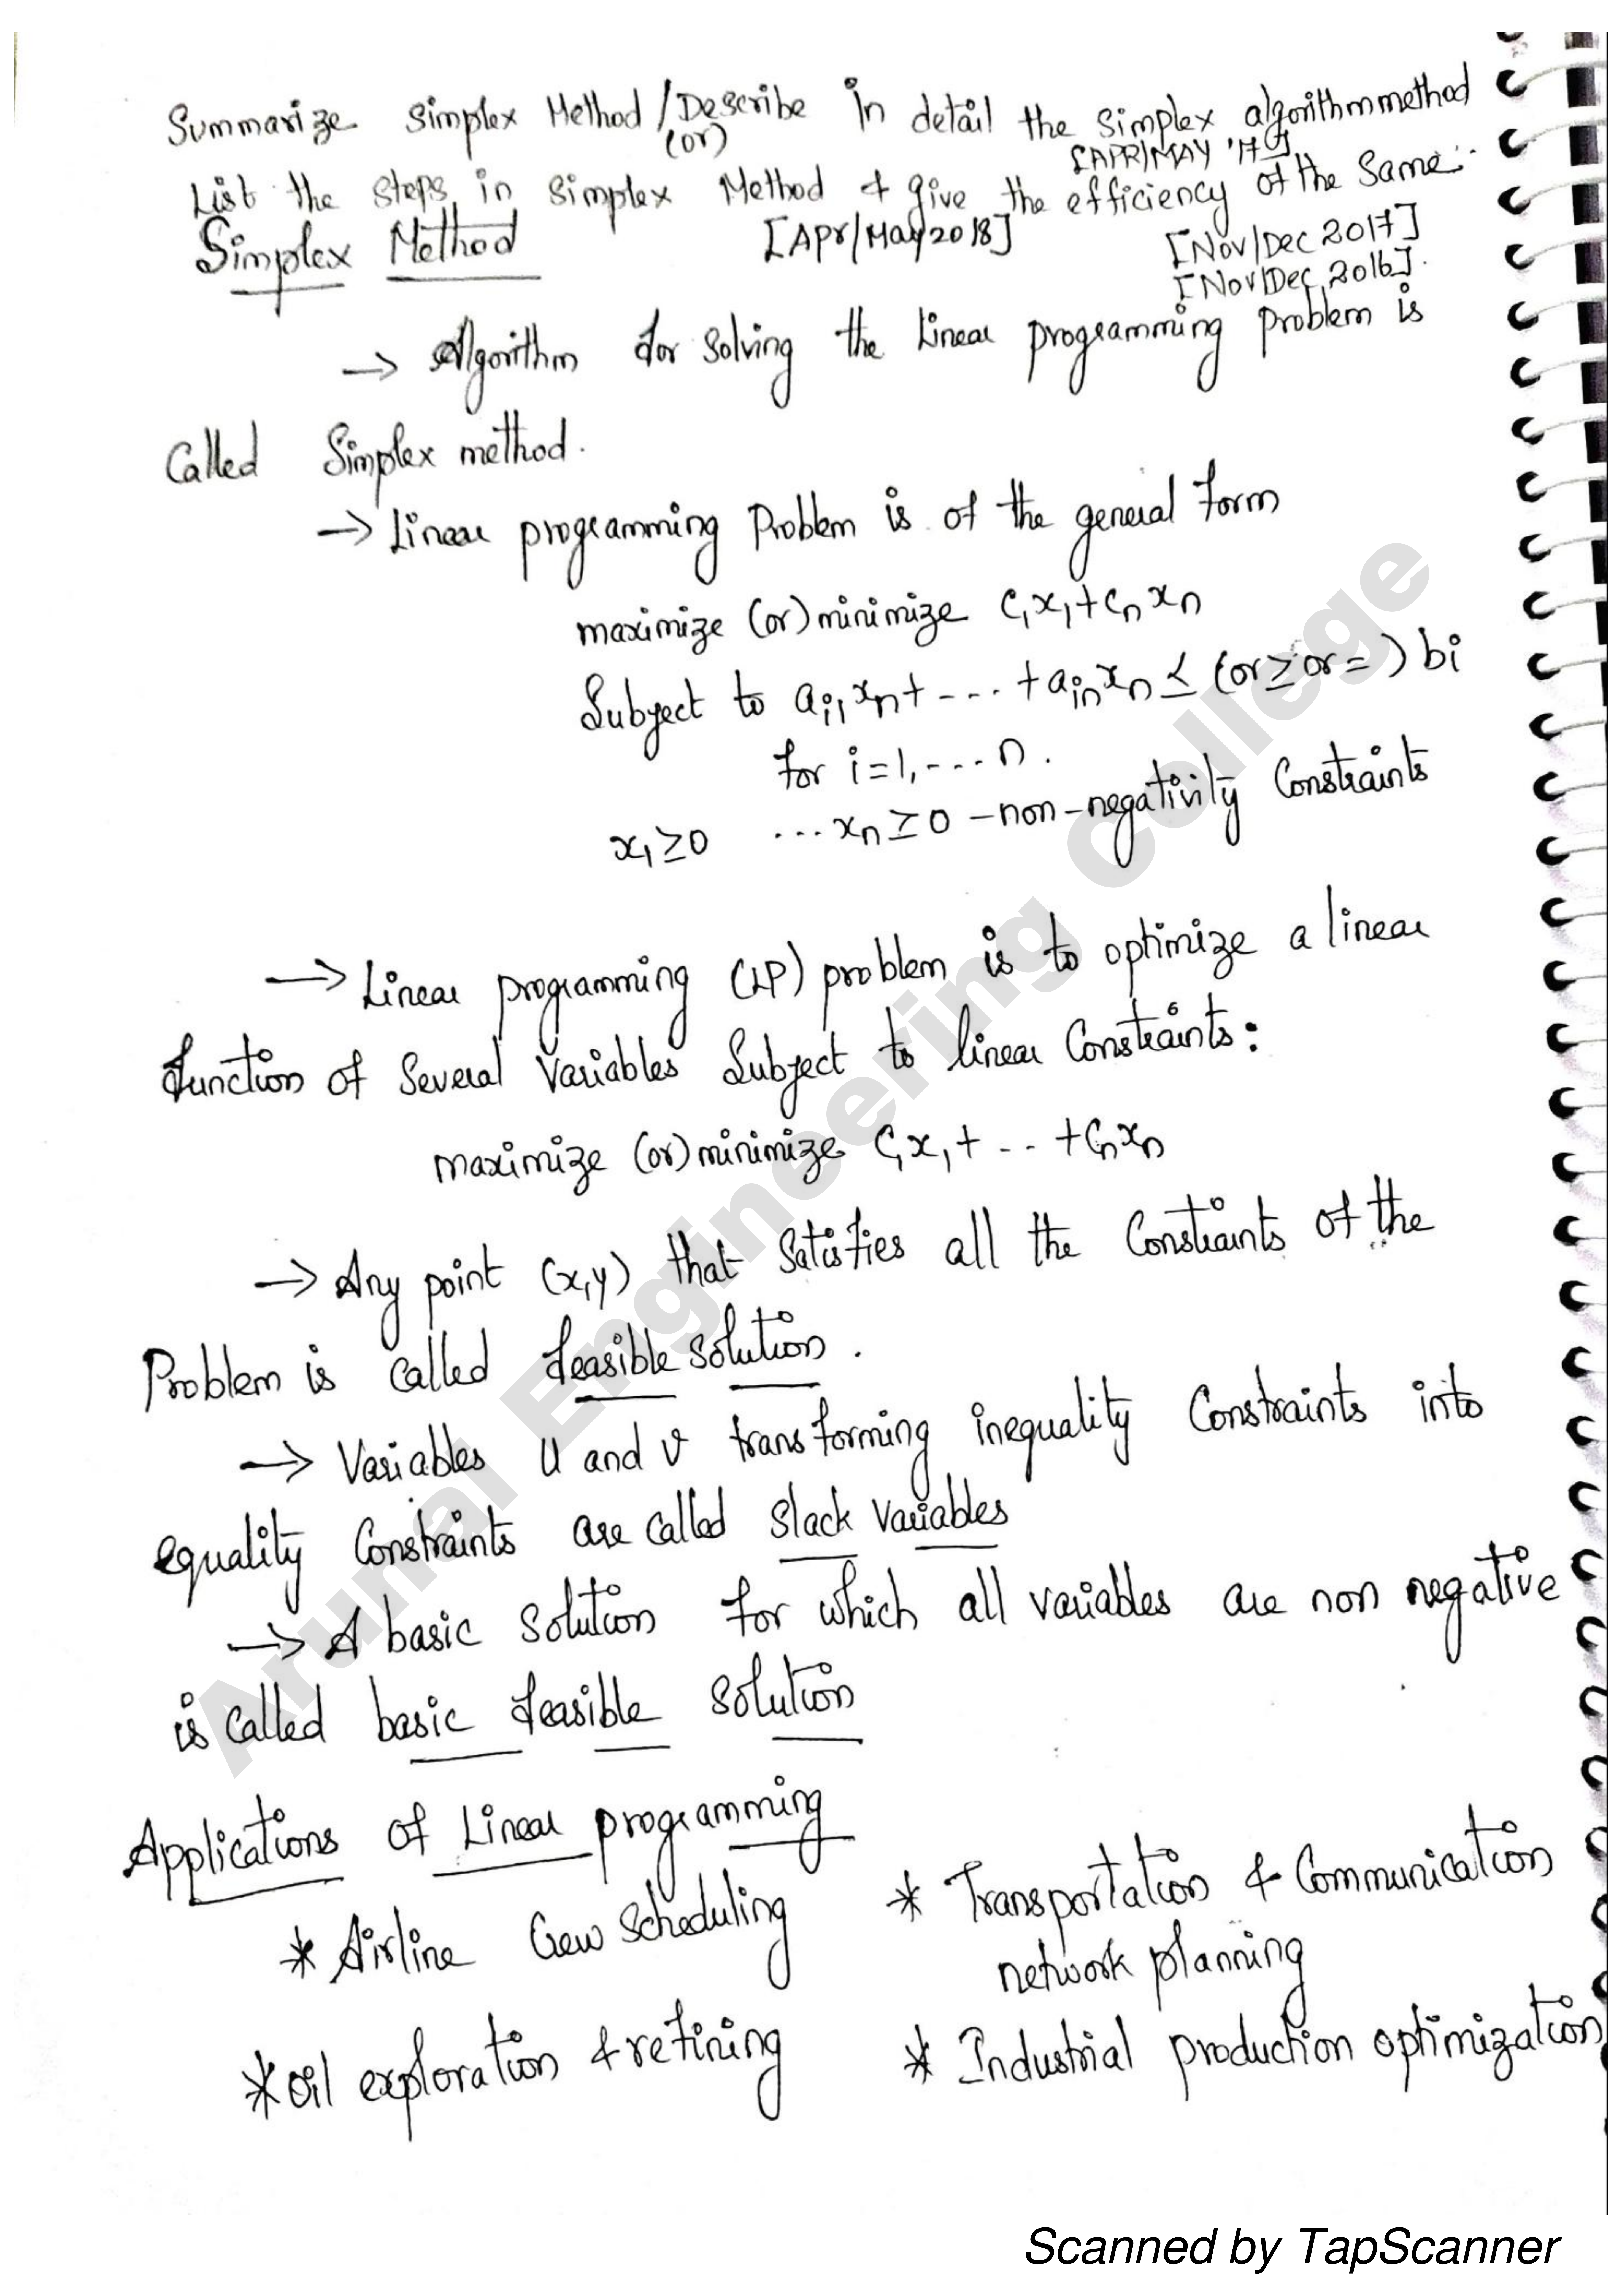 Summarize Simplex Method / Describe in detail the simplex algorithm method
(or) [APR/MAY '17]
List the steps in simplex Method & give the efficiency of the same.
Simplex Method [Apr/May 2018] [Nov/Dec 2017]
[Nov/Dec 2016].
→ Algorithm for solving the Linear programming problem is
Called Simplex method.
→ Linear programming Problem is of the general form
maximize (or) minimize c₁x₁+cₙxₙ
Subject to aᵢ₁xₙ+ --- +aᵢₙxₙ ≤ (or ≥ or = ) bi
for i=1,---n.
x₁≥0 ...xₙ≥0 -non-negativity Constraints
→ Linear programming (LP) problem is to optimize a linear
function of Several Variables Subject to linear Constraints:
maximize (or) minimize C₁x₁+ -.. +Cₙxₙ
→ Any point (x,y) that satisfies all the Constraints of the
Problem is called feasible solution.
→ Variables U and v transforming inequality Constraints into
equality Constraints are called Slack Variables
→ A basic solution for which all variables are non negative
is called basic feasible solution
Applications of Linear programming
* Airline Crew Scheduling * Transportation & Communication
network planning
* Oil exploration & refining * Industrial production optimization
Arunai Engineering College
Scanned by TapScanner